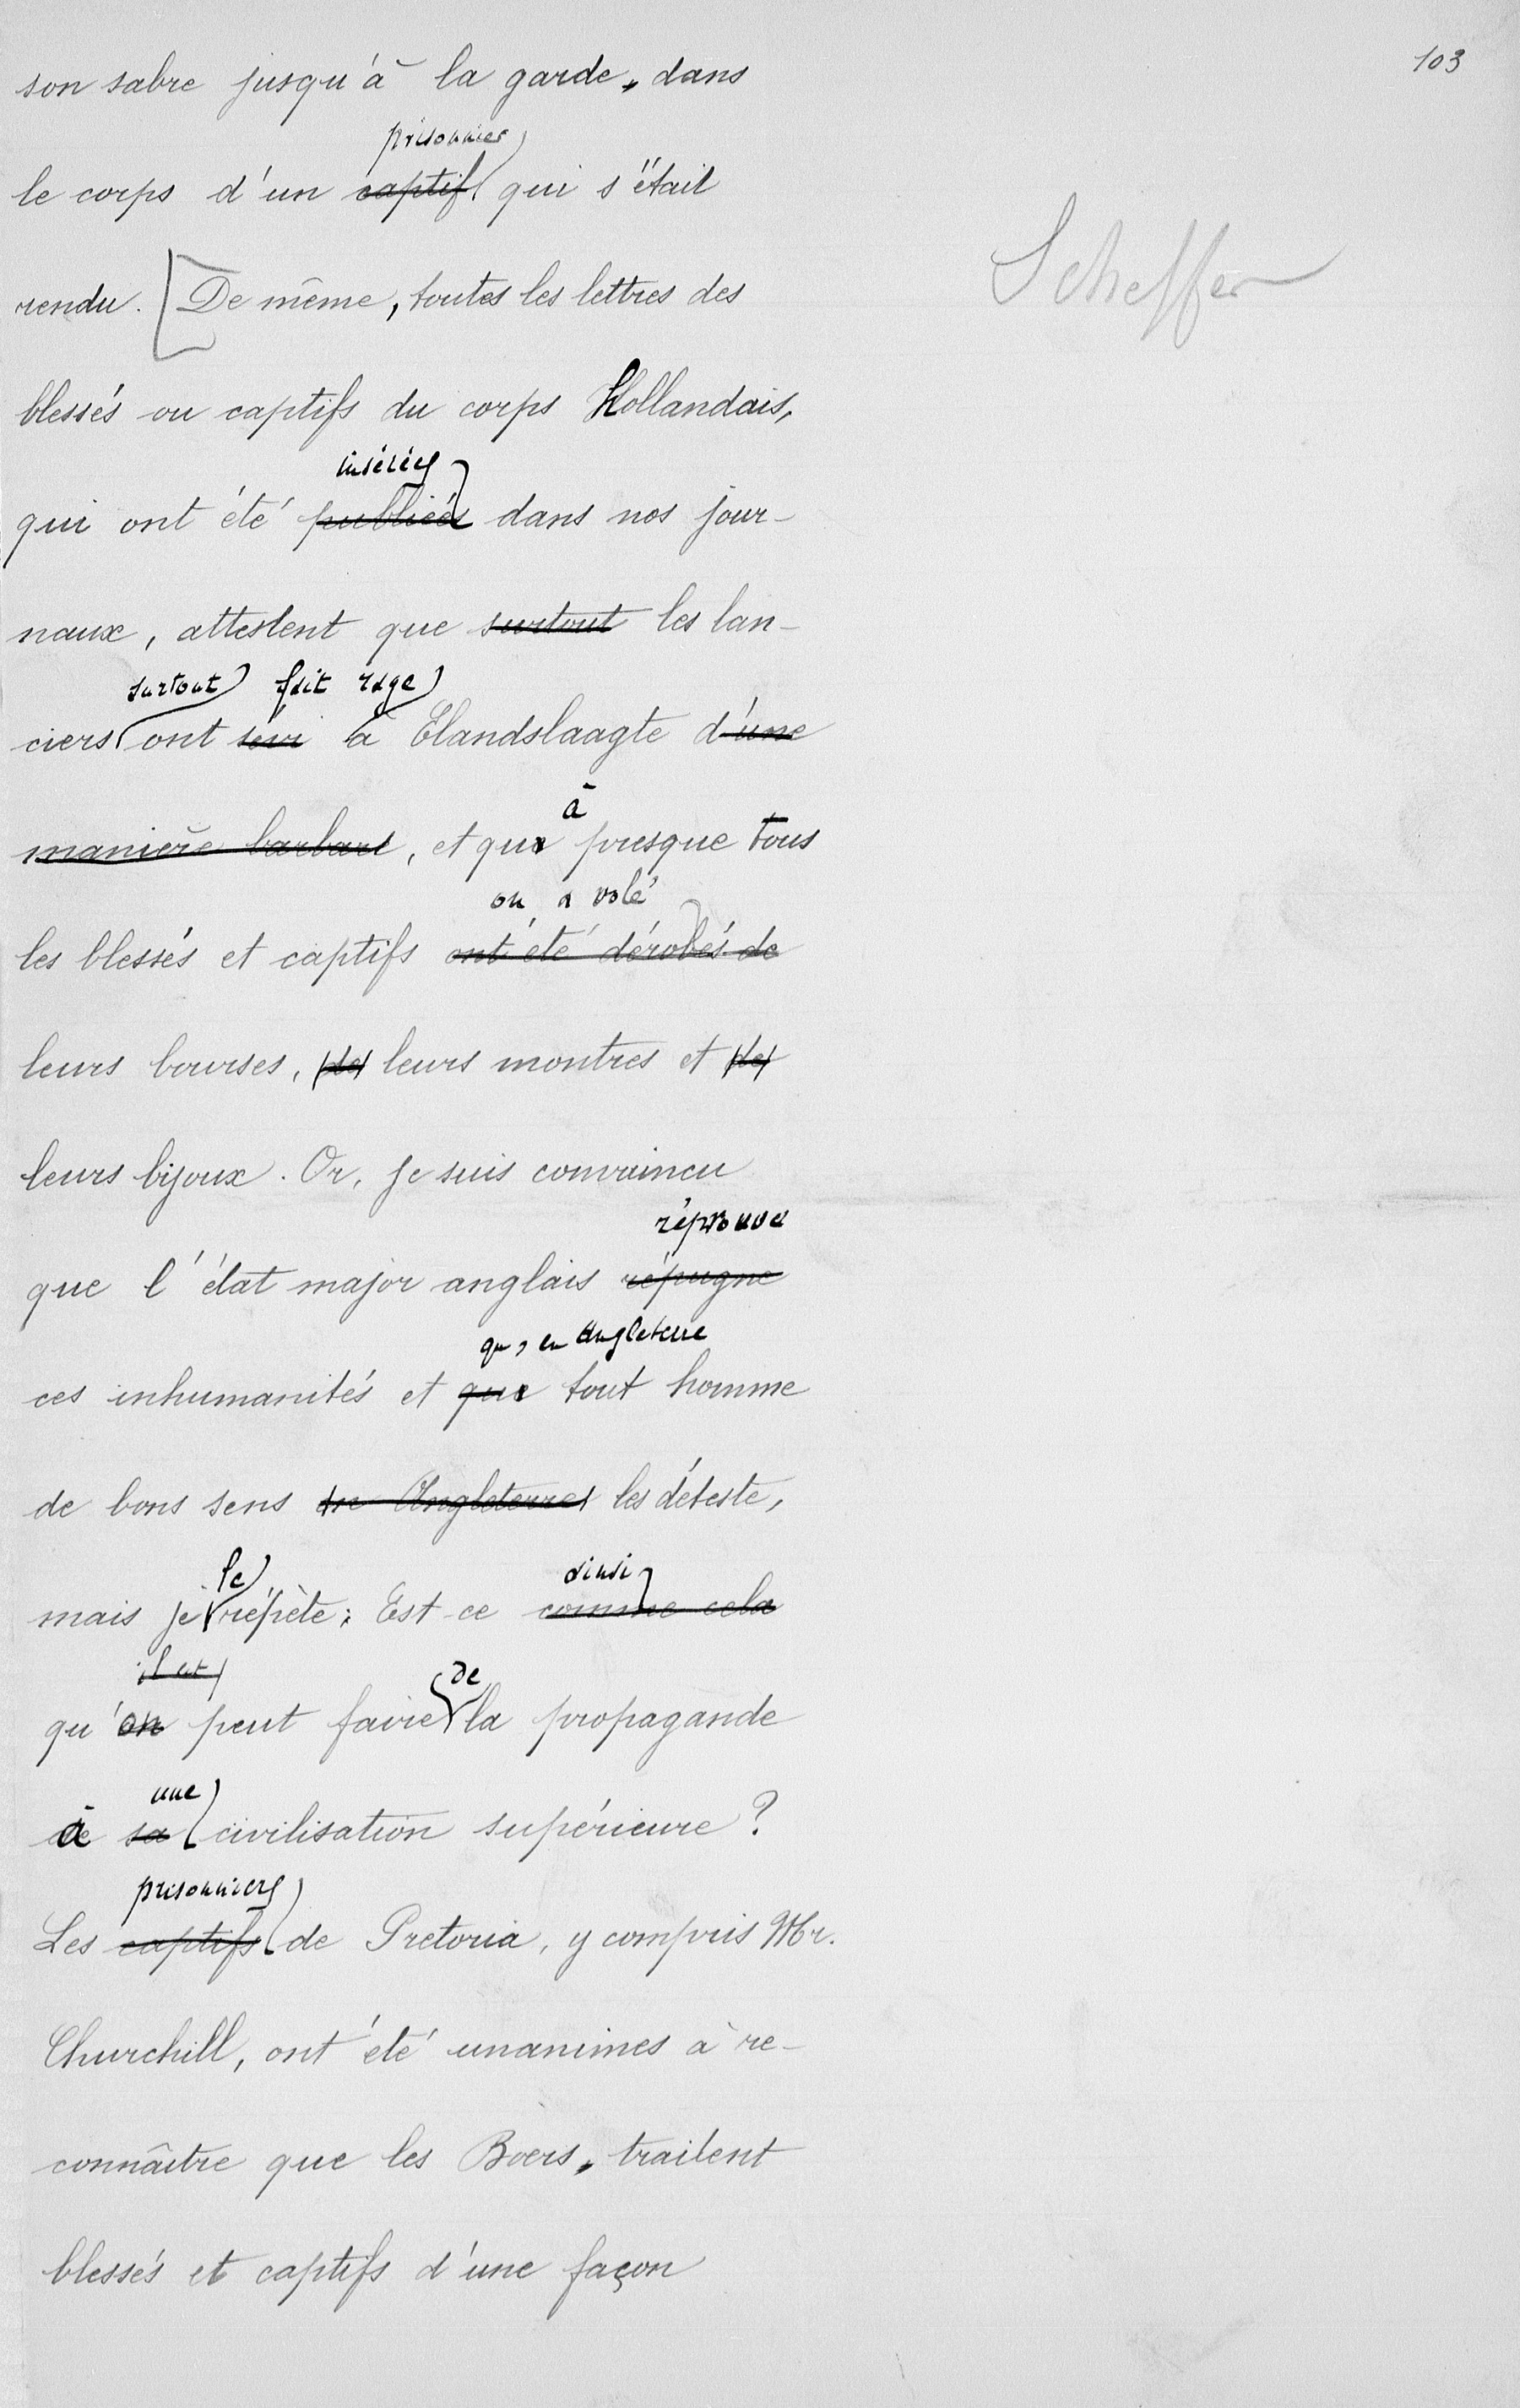 103
son sabre jusqu'à la garde, dans
prisonnier
le corps d'un captif qui s'était
Scheffer
rendu. [De même, toutes les lettres des
blessés ou captifs du corps Hollandais,
insérées
qui ont été publiées dans nos jour-
naux, attestent que surtout les lan-
surtout fait rage
ciers ont sévi à Elandslaagte d'une
à
manière barbare, et que presque tous
on a volé
les blessés et captifs ont été dérobés de
leurs bourses, de leurs montres et de
leurs bijoux. Or, je suis convaincu
réprouve
que l'état major anglais répugne
qu'en Angleterre
ces inhumanités et que tout homme
de bons sens en Angleterre les déteste,
le ainsi
mais je répète: Est-ce comme cela
de
qu'on peut faire la propagande
une
à sa civilisation supérieure?
prisonniers
Les captifs de Pretoria, y compris Mr.
Churchill, ont été unanimes à re-
connaître que les Boers, traitent
blessés et captifs d'une façon